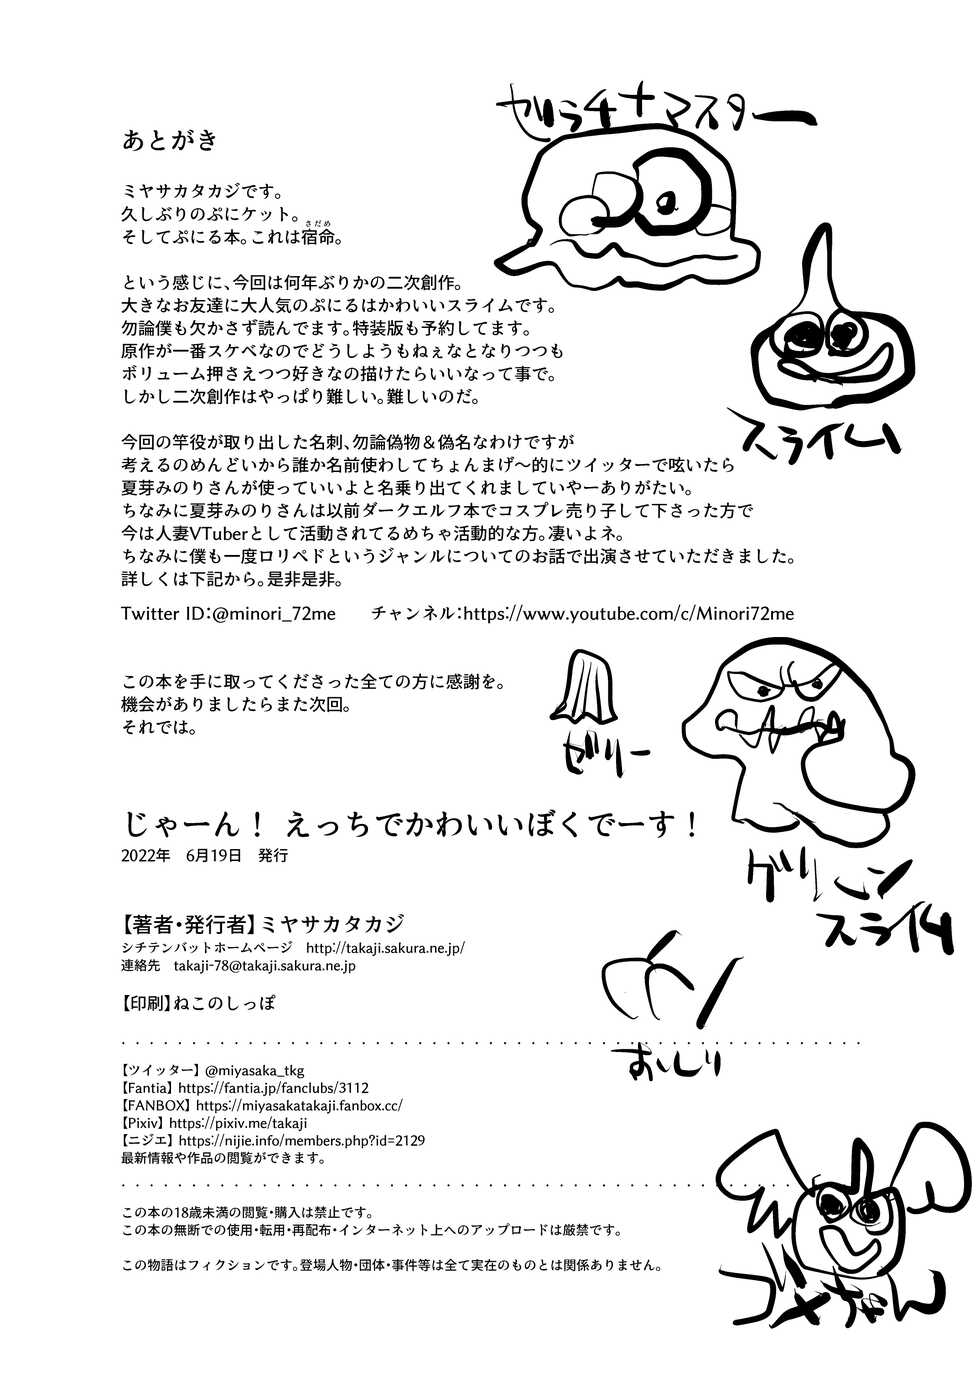 ゼラチナマスター
あとがき
ミヤサカタカジです。
久しぶりのぷにケット。
そしてぷにる本。これは宿命。
さだめ
という感じに、今回は何年ぶりかの二次創作。
大きなお友達に大人気のぷにるはかわいいスライムです。
勿論僕も欠かさず読んでます。特装版も予約してます。
原作が一番スケベなのでどうしようもねぇなとなりつつも
ボリューム押さえつつ好きなの描けたらいいなって事で。
しかし二次創作はやっぱり難しい。難しいのだ。
スライム
今回の竿役が取り出した名刺、勿論偽物＆偽名なわけですが
考えるのめんどいから誰か名前使わしてちょんまげ〜的にツイッターで呟いたら
夏芽みのりさんが使っていいよと名乗り出てくれましていやーありがたい。
ちなみに夏芽みのりさんは以前ダークエルフ本でコスプレ売り子して下さった方で
今は人妻VTuberとして活動されてるめちゃ活動的な方。凄いよネ。
ちなみに僕も一度ロリペドというジャンルについてのお話で出演させていただきました。
詳しくは下記から。是非是非。
Twitter ID：@minori_72me　チャンネル：https://www.youtube.com/c/Minori72me
この本を手に取ってくださった全ての方に感謝を。
機会がありましたらまた次回。
それでは。
ゼリー
じゃーん！ えっちでかわいいぼくでーす！
2022年　6月19日　発行
グリーン
スライム
【著者・発行者】ミヤサカタカジ
シチテンバットホームページ　http://takaji.sakura.ne.jp/
連絡先　takaji-78@takaji.sakura.ne.jp
【印刷】ねこのしっぽ
おしり
【ツイッター】 @miyasaka_tkg
【Fantia】 https://fantia.jp/fanclubs/3112
【FANBOX】 https://miyasakatakaji.fanbox.cc/
【Pixiv】 https://pixiv.me/takaji
【ニジエ】 https://nijie.info/members.php?id=2129
最新情報や作品の閲覧ができます。
この本の18歳未満の閲覧・購入は禁止です。
この本の無断での使用・転用・再配布・インターネット上へのアップロードは厳禁です。
この物語はフィクションです。登場人物・団体・事件等は全て実在のものとは関係ありません。